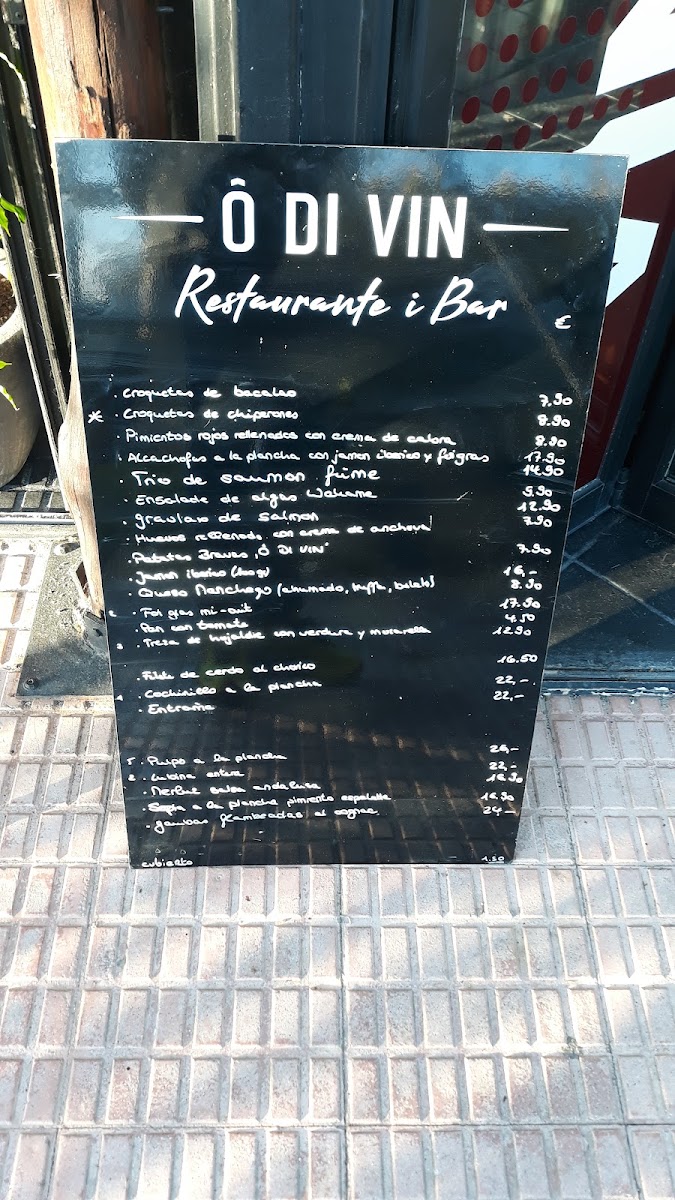 Ô DI VIN
Restaurante i Bar
€
· Croquetas de bacalao 7,90
* · Croquetas de chiperones 8.90
· Pimientos rojos rellenados con crema de cabra 8.90
· Alcachofas a la plancha con jamon iberico y foigras 17.90
· Trio de saumon fume 14.90
· Ensalade de algas Wakame 5.90
· gravlaxo de salmon 12.90
· Huevos rellenado con crema de anchova 7.90
· Patatas Bravas Ô DI VIN 7.90
· Jamon iberico 16,-
· Queso Manchego (ahumado, truffa, 8.90
· Foi gras mi-cuit 17.90
· Pan con tomate 4.50
· Treza de hojaldre con verdura y mozarella 12.90
· Filete de cerdo al chorico 16.50
· Cochinillo a la plancha 22,-
· Entraña 22,-
· Pulpo a la plancha 24,-
· Lubina entera 22,-
· Merluz salsa andalusa 16.90
· Sepia a la plancha pimiento espelette 16.90
· gambas flambeadas al cognac 24,-
cubierto 1.50